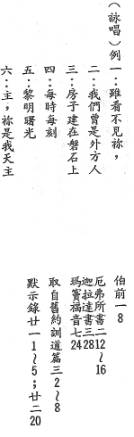 （詠唱）例一：雖看不見祢，
伯前一8
二：我們曾是外方人
厄弗所書二12～16
迦拉達書三28
三：房子建在磐石上
瑪竇福音七24
四：每時每刻
取自舊約訓道篇三2～8
五：黎明曙光
六：主，祢是我天主
默示錄廿一1～5；廿二20